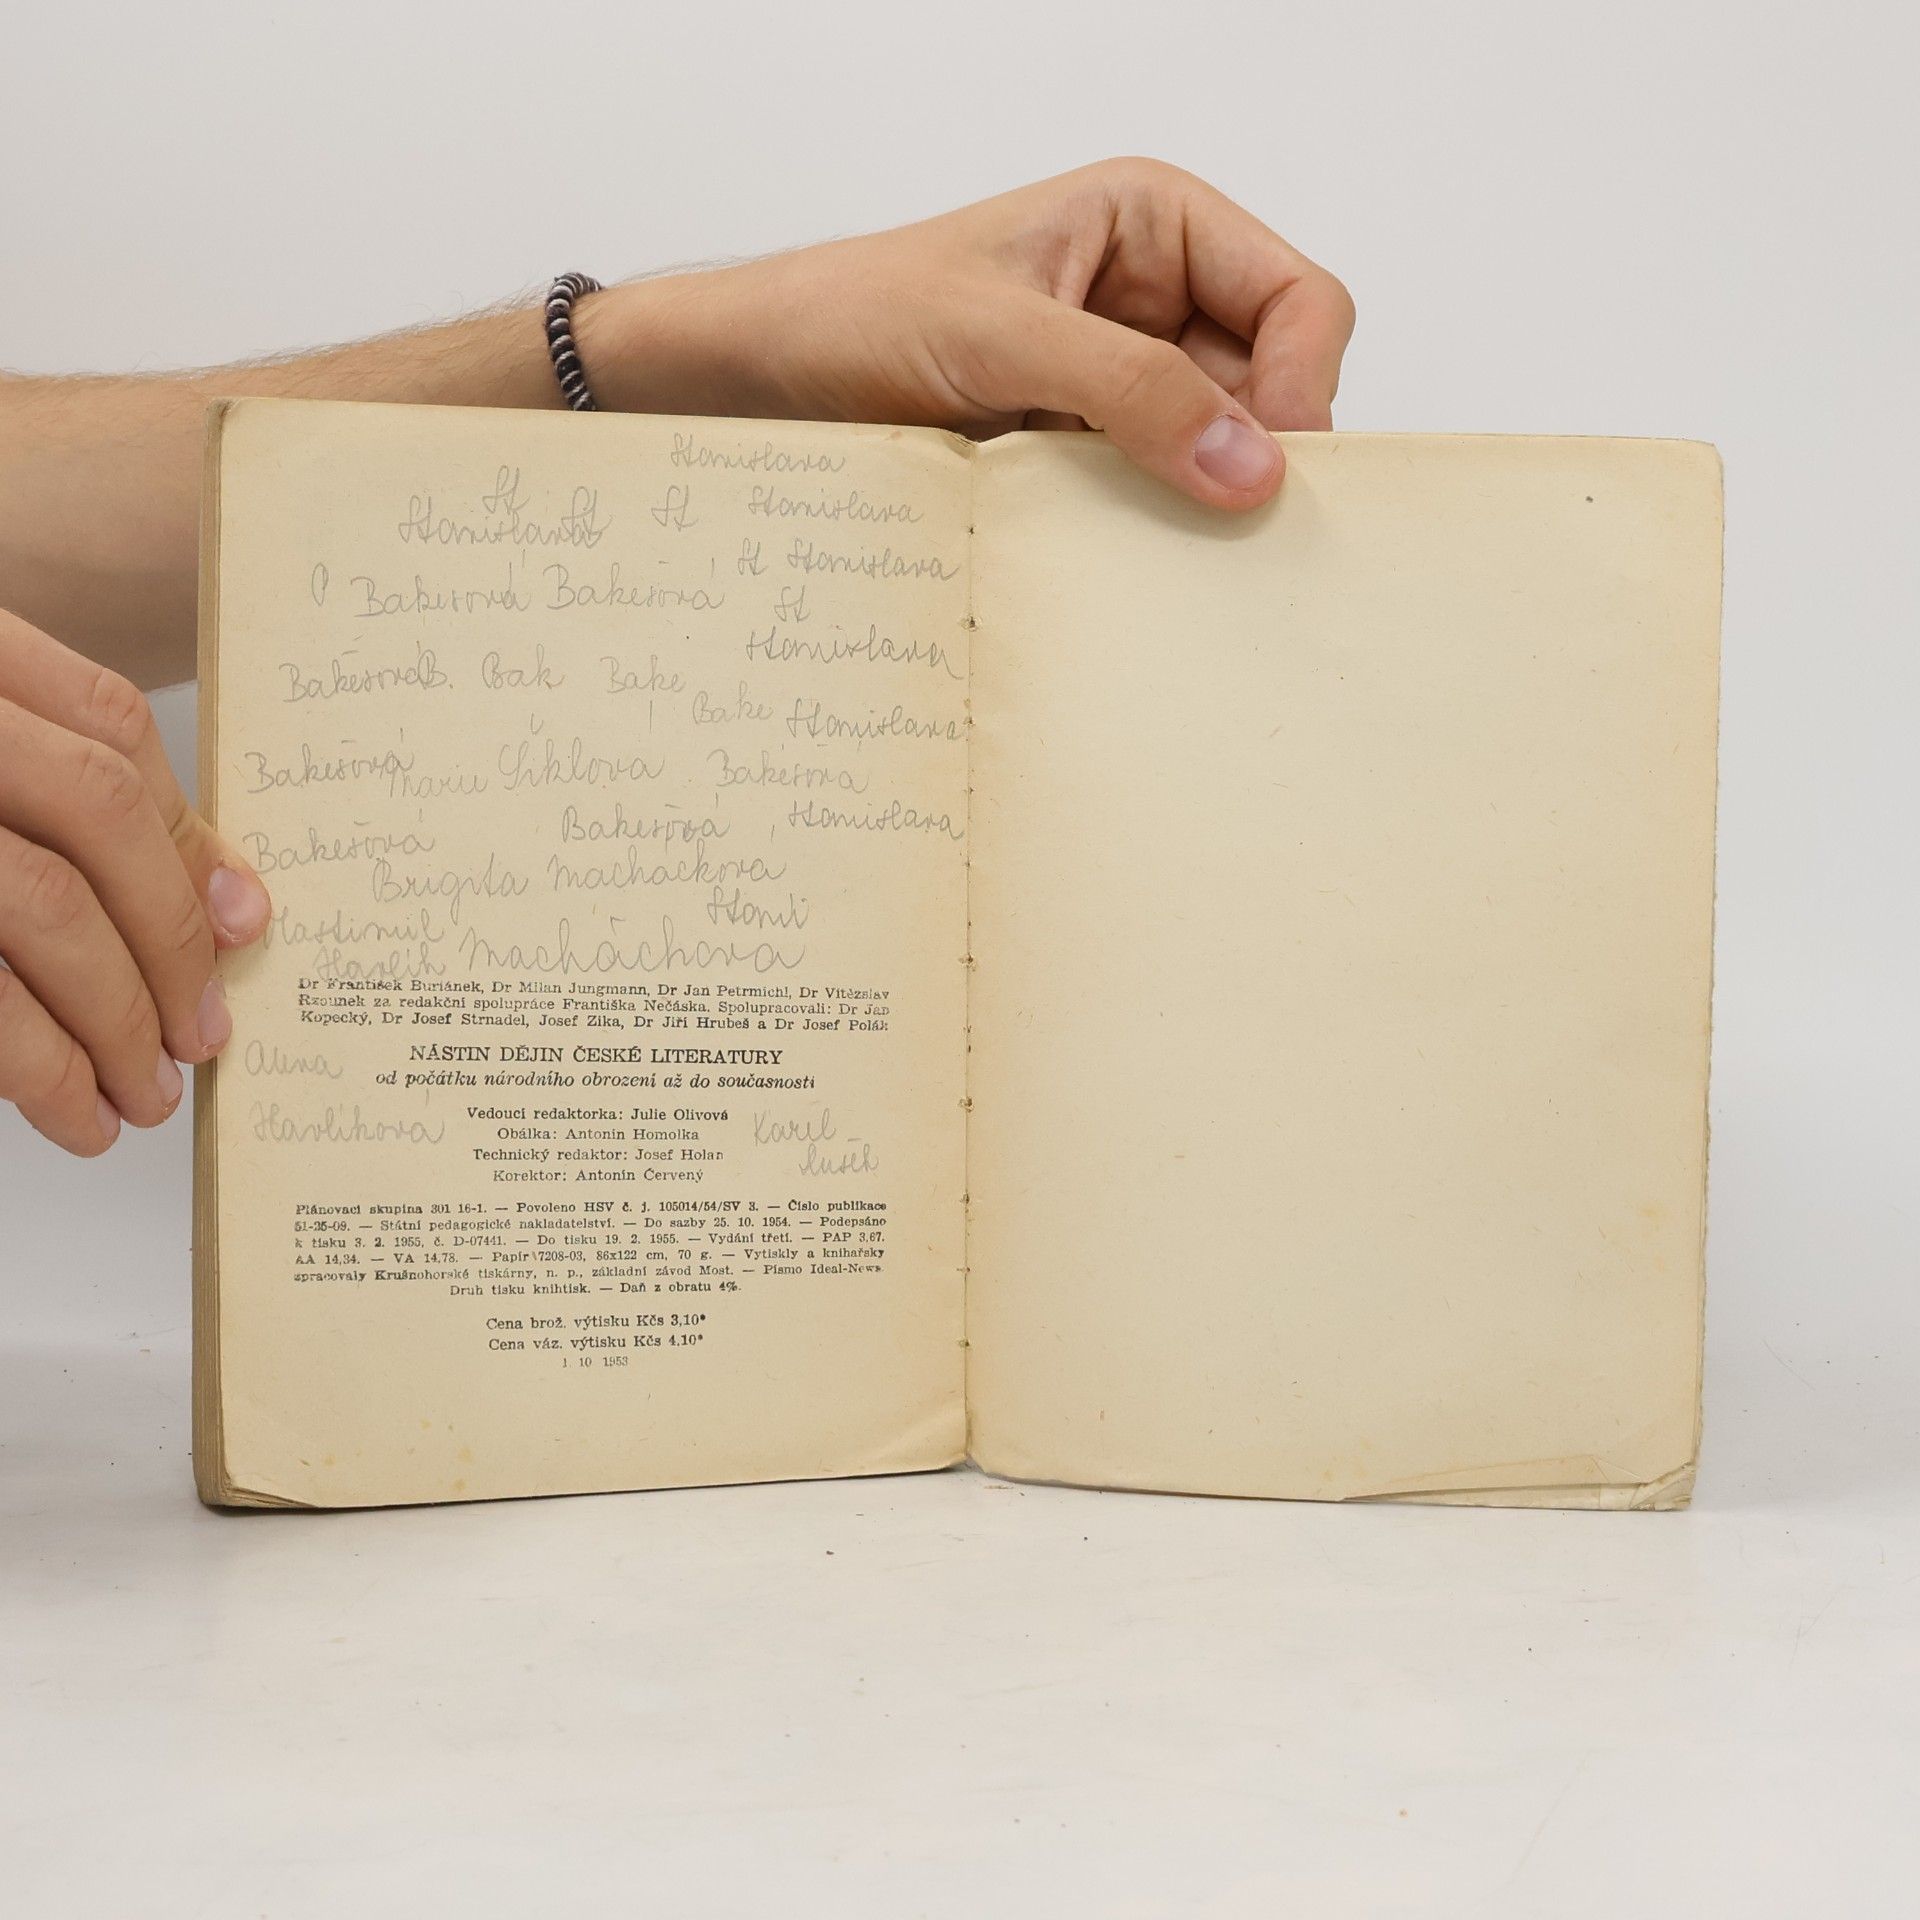 Stanislava
St
Stanislava St St Stanislava
St Stanislava
Bakesová Bakešová St
Stanislava
Bakešová B. Bak Bake
Bake Stanislava
Bakešová Marie Šiklova Bakešová
Bakešová Stanislava
Bakešová
Brigita Macháčkova
Stani
Vlastimil
Havlík Macháčkova
Dr František Buriánek, Dr Milan Jungmann, Dr Jan Petrmichl, Dr Vítězslav
Rzounek za redakční spolupráce Františka Nečáska. Spolupracovali: Dr Jan
Kopecký, Dr Josef Strnadel, Josef Zika, Dr Jiří Hrubeš a Dr Josef Polák
NÁSTIN DĚJIN ČESKÉ LITERATURY
Alena
od počátku národního obrození až do současnosti
Vedoucí redaktorka: Julie Olivová
Havlíková
Karel
Obálka: Antonín Homolka
Technický redaktor: Josef Holan
Korektor: Antonín Červený
Plánovací skupina 301 16-1. — Povoleno HSV č. j. 105014/54/SV 3. — Číslo publikace
51-25-09. — Státní pedagogické nakladatelství. — Do sazby 25. 10. 1954. — Podepsáno
k tisku 3. 2. 1955, č. D-07441. — Do tisku 19. 2. 1955. — Vydání třetí. — PAP 3,67.
AA 14,34. — VA 14,78. — Papír 7208-03, 86x122 cm, 70 g. — Vytiskly a knihařsky
zpracovaly Krušnohorské tiskárny, n. p., základní závod Most. — Písmo Ideal-News.
Druh tisku knihtisk. — Daň z obratu 4%.
Cena brož. výtisku Kčs 3,10*
Cena váz. výtisku Kčs 4,10*
1. 10 1953